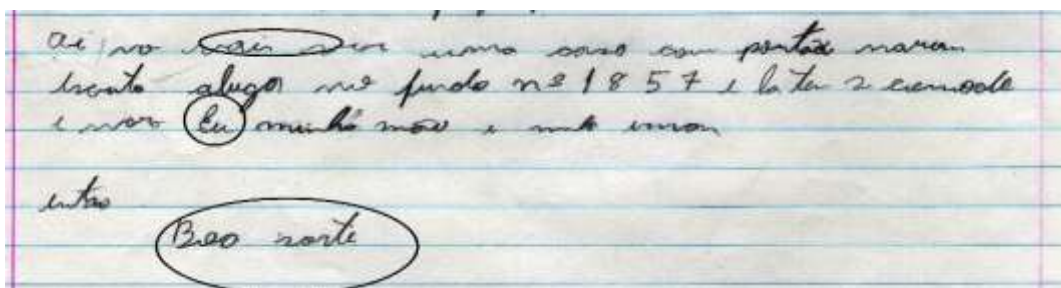 ai vo vair ver uma casa com portão marom
escrito alugo no fundo nº 1857 e la tem 2 comode
e mora Eu minha mãe e meu irmão
então
Boa sorte